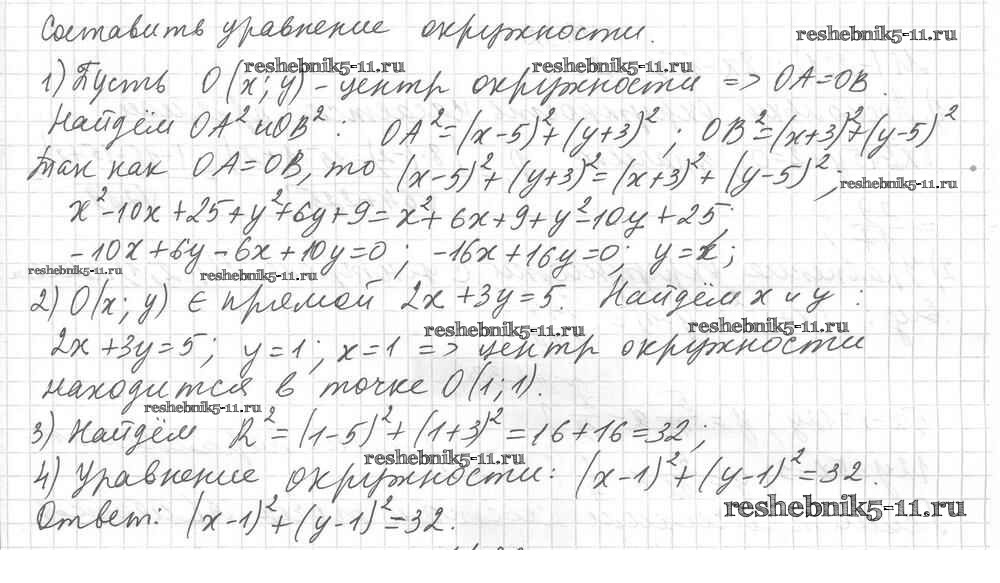 Составить уравнение окружности.
reshebnik5-11.ru
reshebnik5-11.ru reshebnik5-11.ru
1) Пусть O(x; y) - центр окружности => OA=OB.
Найдём OA² и OB²: OA²=(x-5)²+(y+3)²; OB²=(x+3)²+(y-5)²
так как OA=OB, то (x-5)²+(y+3)²=(x+3)²+(y-5)²;
reshebnik5-11.ru
x²-10x+25+y²+6y+9=x²+6x+9+y²-10y+25;
-10x+6y-6x+10y=0; -16x+16y=0; y=x;
reshebnik5-11.ru reshebnik5-11.ru
2) O(x; y) ∈ прямой 2x+3y=5. Найдём x и y:
reshebnik5-11.ru reshebnik5-11.ru
2x+3y=5; y=1; x=1 => центр окружности
находится в точке O(1;1).
reshebnik5-11.ru
3) Найдём R²=(1-5)²+(1+3)²=16+16=32;
reshebnik5-11.ru
4) Уравнение окружности: (x-1)²+(y-1)²=32.
Ответ: (x-1)²+(y-1)²=32.
reshebnik5-11.ru